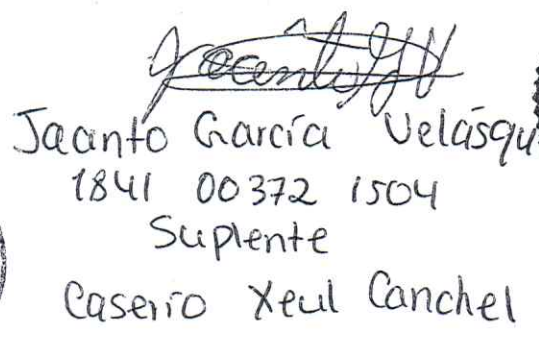 Jacinto G V
Jacinto García Velásqu
1841 00372 1504
Suplente
Caserío Xeul Canchel